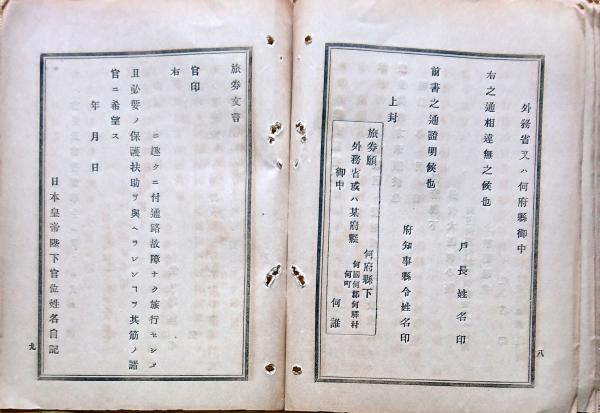 外務省又ハ何府縣御中
右之通相違無之候也
戸長姓名印
前書之通證明候也
府知事縣令姓名印
上封
旅劵願
外務省或ハ某府縣
御中
何府縣下
何國何郡何驛村
何町
何誰
八
旅劵文言
官印
右
ニ趣クニ付通路故障ナク旅行セシメ
且必要ノ保護扶助ヲ與ヘラレンヿヲ其筋ノ諸
官ニ希望ス
年月日
日本皇帝陛下官位姓名自記
九